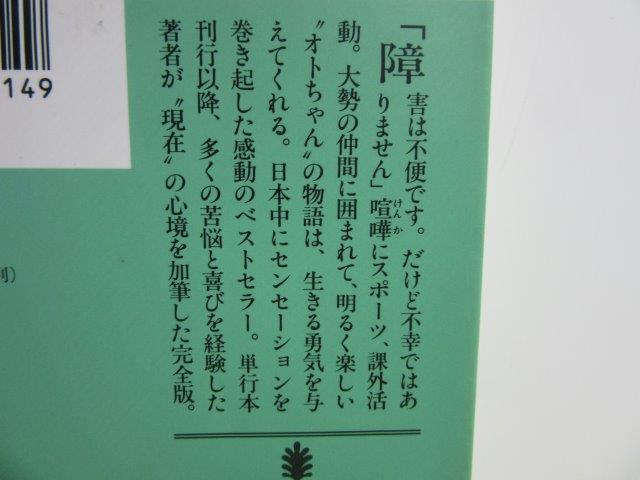 「障害は不便です。だけど不幸ではあ
りません」喧嘩にスポーツ、課外活
動。大勢の仲間に囲まれて、明るく楽しい
〝オトちゃん〟の物語は、生きる勇気を与
えてくれる。日本中にセンセーションを
巻き起した感動のベストセラー。単行本
刊行以降、多くの苦悩と喜びを経験した
著者が〝現在〟の心境を加筆した完全版。
けんか
149
別）